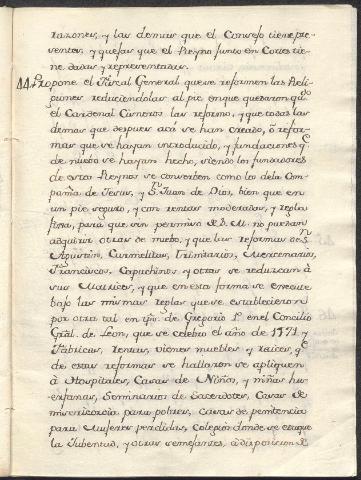 razones, y las demas que el Consejo tiene pre-
sentes, y quejas que el Reyno junto en Cortes tie-
ne dadas, y representadas.
44. Propone el Fiscal General que se reformen las Reli-
giones reduciendolas al pie en que quedaron qdo.
el Cardenal Cisneros las reformo, y que todas las
demas que despues acá se han creado, ó refor-
mas que se hayan introducido, y fundaciones q.e
de nuebo se hayan hecho, siendo los fundadores
de estos Reynos se conserben como los de la Com-
pañia de Jesus, y S.n Juan de Dios, bien que en
un pie seguro, y con rentas moderadas, y regla
fixa, para que sin permiso de S. M. no puedan
adquirir otras de nuebo, y que las reformas de S.n
Agustin, Carmelitas, Trinitarios, Mercenarios,
Franciscos, Capuchinos y otras se reduzcan á
sus Matrices, y que en esta forma se execute
bajo las mismas reglas que se establecieron
por otra tal en tpo. de Gregorio 1.º en el Concilio
Gral. de Leon, que se celebro el año de 1571 y
Fabricas, rentas, vienes muebles y raices, q.e
de estas reformas se hallaron se apliquen
á Hospitales, Casas de Niños, y niñas hu-
erfanas, Seminarios de Sacerdotes, Casas de
misericordia para pobres, Casas de penitencia
para Mujeres perdidas, Colegios donde se eduque
la Jubentud, y otras semejantes, á disposicion de